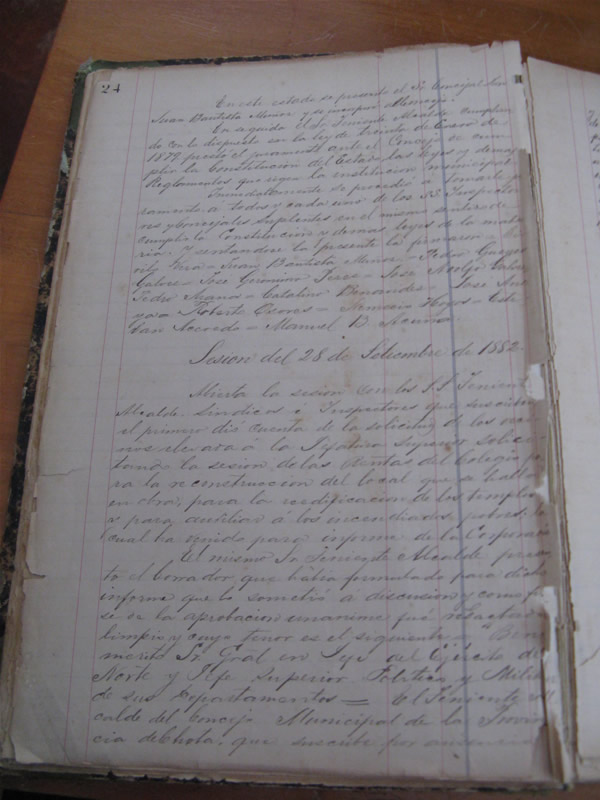 24
En este estado se presentó el Sr. Concejal Don
Juan Bautista Muñoz y se incorporó
En seguida el Sr. Teniente Alcalde cumplien
do con lo dispuesto en la ley de treinta de Enero de
1879 prestó el juramento ante el Concejo de cum
plir la Constitucion del Estado las leyes y demas
Reglamentos que rigen la institucion municipal
Inmediatamente se procedió a tomarle ju
ramento a todos y cada uno de los SS. Inspecto
res y Concejales Suplentes en el mismo sentido de
cumplir la Constitucion y demas leyes de la mate
ria. Y sentandose la presente la firmaron
Juan Bautista Muñoz = Pedro
= José Gerónimo = José
Pedro = Catalino Benavides = José
= Roberto Osores = Nemecio Hoyos = Este
ban Acevedo = Manuel B. Acuña
Sesion del 28 de Setiembre de 1882
Abierta la sesion con los SS. Teniente
Alcalde, Sindicos é Inspectores que suscriben
el primero dió cuenta de la solicitud de los veci
nos elevada á la Jefatura Superior solici
tando la sesion de las Rentas del Colegio pa
ra la reconstruccion del local que se halla
en obra, para la reedificacion de los templos
y para auxiliar á los incendiados pobres; lo
cual ha venido para informe de la Corporació
El mismo Sr. Teniente Alcalde presen
tó el borrador que habia formulado para dicho
informe que lo sometió a discusion y como fue
se de la aprobacion unanime fué redactado
limpio y cuyo tenor es el siguiente = "Bene
merito Sr. Gral en Jefe del Ejército del
Norte y Jefe Superior Politico y Militar
de sus Departamentos = El Teniente Al
calde del Concejo Municipal de la Provin
cia de Chota, que suscribe por ausencia